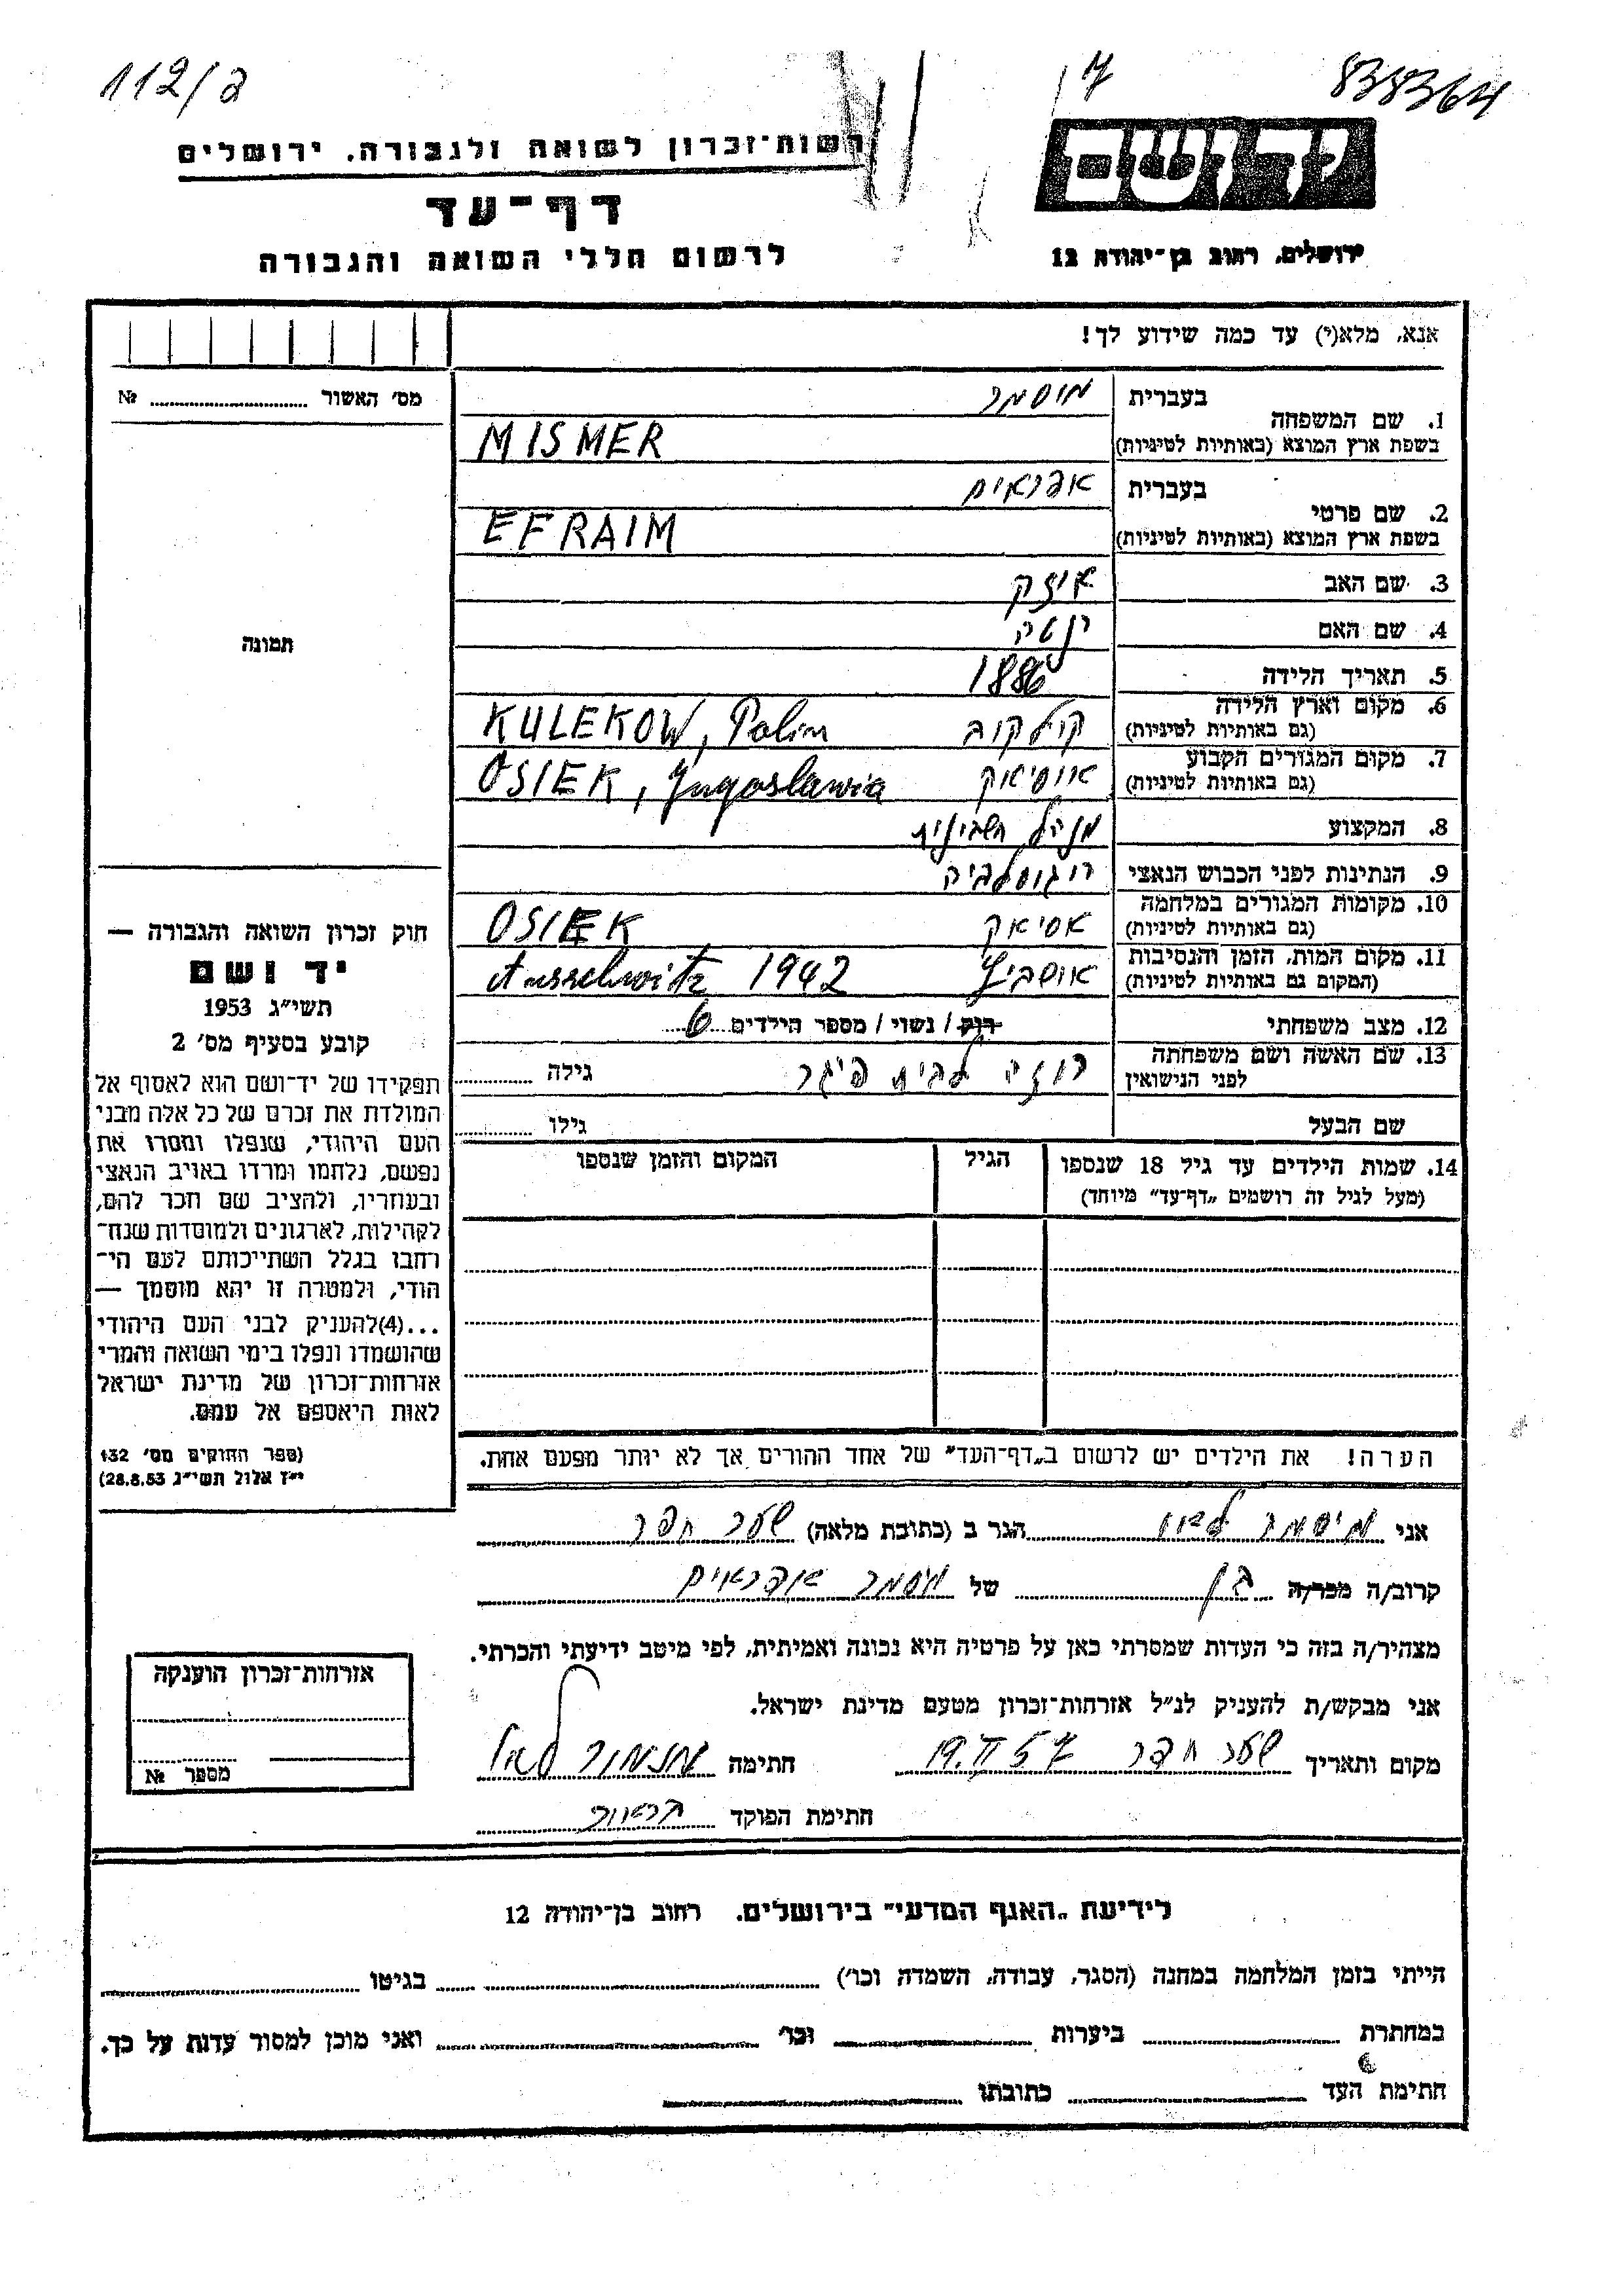 112/ב
7
838364
רשות־זכרון לשואה ולגבורה, ירושלים
יד ושם
דף־עד
לרשום חללי השואה והגבורה
ירושלים, רחוב בן־יהודה 12
אנא, מלא(י) עד כמה שידוע לך!
מס׳ האשור № 
תמונה
חוק זכרון השואה והגבורה —
יד ושם
תשי״ג 1953
קובע בסעיף מס׳ 2
תפקידו של יד־ושם הוא לאסוף אל
המולדת את זכרם של כל אלה מבני
העם היהודי, שנפלו ומסרו את
נפשם, נלחמו ומרדו באויב הנאצי
ובעוזריו, ולהציב שם וזכר להם,
לקהילות, לארגונים ולמוסדות שנח־
רבו בגלל השתייכותם לעם הי־
הודי, ולמטרה זו יהא מוסמך —
...(4)להעניק לבני העם היהודי
שהושמדו ונפלו בימי השואה והמרי
אזרחות־זכרון של מדינת ישראל
לאות היאספם אל עמם.
(ספר החוקים מס׳ 132
י״ז אלול תשי״ג 28.8.53)
1. שם המשפחה
בעברית מיסמר
בשפת ארץ המוצא (באותיות לטיניות) MISMER
2. שם פרטי
בעברית אפראים
בשפת ארץ המוצא (באותיות לטיניות) EFRAIM
3. שם האב איזק
4. שם האם ינטה
5. תאריך הלידה 1886
6. מקום וארץ הלידה
(גם באותיות לטיניות) קולקוב KULEKOW, Polin
7. מקום המגורים הקבוע
(גם באותיות לטיניות) אוסיאק OSIEK, Jugoslawia
8. המקצוע מנהל חשבונות
9. הנתינות לפני הכבוש הנאצי יוגוסלביה
10. מקומות המגורים במלחמה
(גם באותיות לטיניות) אסיאק OSIEK
11. מקום המות, הזמן והנסיבות
(המקום גם באותיות לטיניות) אושביץ Ausschwitz 1942
12. מצב משפחתי רווק / נשוי / מספר הילדים 6
13. שם האשה ושם משפחתה
לפני הנישואין רוזה לבית פיגר גילה
שם הבעל גילו
14. שמות הילדים עד גיל 18 שנספו הגיל המקום והזמן שנספו
(מעל לגיל זה רושמים „דף־עד״ מיוחד)
הערה! את הילדים יש לרשום ב„דף־העד״ של אחד ההורים אך לא יותר מפעם אחת.
אני מיסמר הגר ב (כתובת מלאה) שער חפר
קרוב/ה מכר/ה בן של מסמר אפראים
מצהיר/ה בזה כי העדות שמסרתי כאן על פרטיה היא נכונה ואמיתית, לפי מיטב ידיעתי והכרתי.
אני מבקש/ת להעניק לנ״ל אזרחות־זכרון מטעם מדינת ישראל.
מקום ותאריך שער חפר 19.II 57 חתימה
חתימת הפוקד
אזרחות־זכרון הוענקה
מספר №
לידיעת „האגף המדעי״ בירושלים, רחוב בן־יהודה 12
הייתי בזמן המלחמה במחנה (הסגר, עבודה, השמדה וכו׳) בגיטו
במחתרת ביערות וכו׳ ואני מוכן למסור עדות על כך.
חתימת העד כתובתו